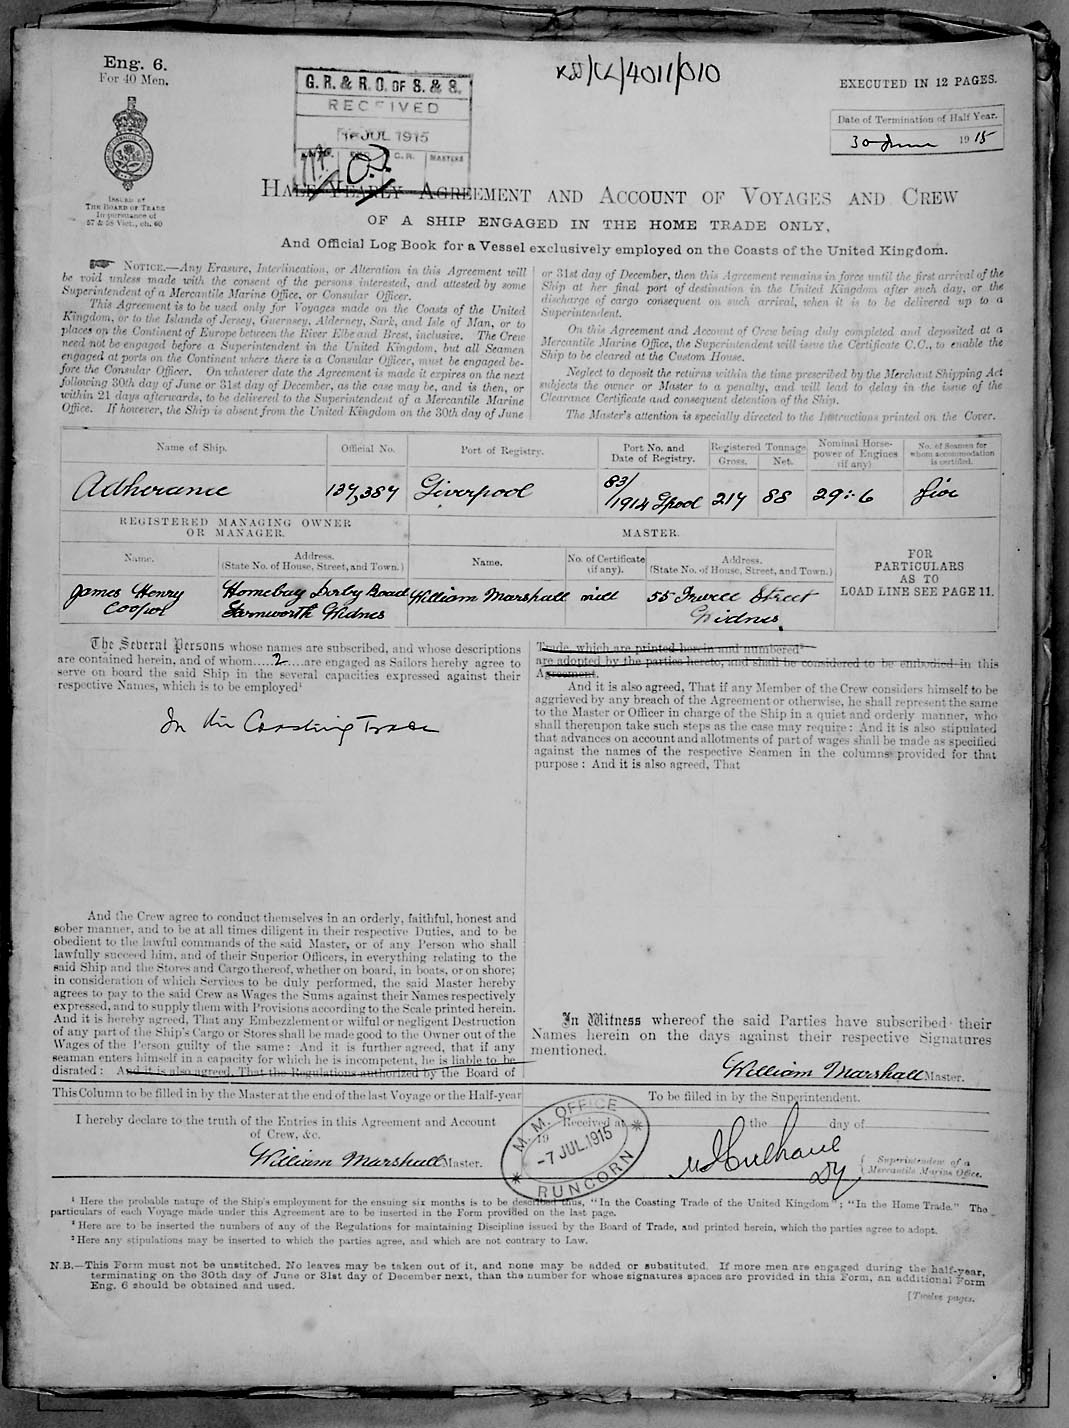 Eng. 6.
For 40 Men.
ISSUED BY
THE BOARD OF TRADE
In pursuance of
57 & 58 Vict., ch. 60
G. R. & R. O. OF S. & S.
RECEIVED
JUL 1915
C.R. MASTERS
/4011/010
EXECUTED IN 12 PAGES.
Date of Termination of Half Year.
30 June 1915
HALF-YEARLY AGREEMENT AND ACCOUNT OF VOYAGES AND CREW
OF A SHIP ENGAGED IN THE HOME TRADE ONLY,
And Official Log Book for a Vessel exclusively employed on the Coasts of the United Kingdom.
NOTICE.—Any Erasure, Interlineation, or Alteration in this Agreement will
be void unless made with the consent of the persons interested, and attested by some
Superintendent of a Mercantile Marine Office, or Consular Officer.
This Agreement is to be used only for Voyages made on the Coasts of the United
Kingdom, or to the Islands of Jersey, Guernsey, Alderney, Sark, and Isle of Man, or to
places on the Continent of Europe between the River Elbe and Brest, inclusive. The Crew
need not be engaged before a Superintendent in the United Kingdom, but all Seamen
engaged at ports on the Continent where there is a Consular Officer, must be engaged be-
fore the Consular Officer. On whatever date the Agreement is made it expires on the next
following 30th day of June or 31st day of December, as the case may be, and is then, or
within 21 days afterwards, to be delivered to the Superintendent of a Mercantile Marine
Office. If however, the Ship is absent from the United Kingdom on the 30th day of June
or 31st day of December, then this Agreement remains in force until the first arrival of the
Ship at her final port of destination in the United Kingdom after such day, or the
discharge of cargo consequent on such arrival, when it is to be delivered up to a
Superintendent.
On this Agreement and Account of Crew being duly completed and deposited at a
Mercantile Marine Office, the Superintendent will issue the Certificate C.C., to enable the
Ship to be cleared at the Custom House.
Neglect to deposit the returns within the time prescribed by the Merchant Shipping Act
subjects the owner or Master to a penalty, and will lead to delay in the issue of the
Clearance Certificate and consequent detention of the Ship.
The Master's attention is specially directed to the Instructions printed on the Cover.
Name of Ship. Official No. Port of Registry. Port No. and Date of Registry. Registered Tonnage Gross. Net. Nominal Horse-power of Engines (if any) No. of Seamen for whom accommodation is certified.
Adherance 137,387 Liverpool 83/1914 Lpool 217 88 29:6 five
REGISTERED MANAGING OWNER
OR MANAGER.
MASTER.
Name. Address. (State No. of House, Street, and Town.) Name. No. of Certificate (if any). Address. (State No. of House, Street, and Town.)
FOR
PARTICULARS
AS TO
LOAD LINE SEE PAGE 11.
James Henry Cooper Derby Road Farnworth Widnes William Marshall nill 55 Irwell Street Widnes.
The Several Persons whose names are subscribed, and whose descriptions
are contained herein, and of whom.....2....are engaged as Sailors hereby agree to
serve on board the said Ship in the several capacities expressed against their
respective Names, which is to be employed¹
In the Coasting Trade
And the Crew agree to conduct themselves in an orderly, faithful, honest and
sober manner, and to be at all times diligent in their respective Duties, and to be
obedient to the lawful commands of the said Master, or of any Person who shall
lawfully succeed him, and of their Superior Officers, in everything relating to the
said Ship and the Stores and Cargo thereof, whether on board, in boats, or on shore;
in consideration of which Services to be duly performed, the said Master hereby
agrees to pay to the said Crew as Wages the Sums against their Names respectively
expressed, and to supply them with Provisions according to the Scale printed herein.
And it is hereby agreed, That any Embezzlement or wilful or negligent Destruction
of any part of the Ship's Cargo or Stores shall be made good to the Owner out of the
Wages of the Person guilty of the same: And it is further agreed, that if any
seaman enters himself in a capacity for which he is incompetent, he is liable to be
disrated: And it is also agreed, That the Regulations authorized by the Board of
Trade, which are printed herein and numbered²
are adopted by the parties hereto, and shall be considered to be embodied in this
Agreement.
And it is also agreed, That if any Member of the Crew considers himself to be
aggrieved by any breach of the Agreement or otherwise, he shall represent the same
to the Master or Officer in charge of the Ship in a quiet and orderly manner, who
shall thereupon take such steps as the case may require: And it is also stipulated
that advances on account and allotments of part of wages shall be made as specified
against the names of the respective Seamen in the columns provided for that
purpose: And it is also agreed, That
In Witness whereof the said Parties have subscribed their
Names herein on the days against their respective Signatures
mentioned.
William Marshall Master.
This Column to be filled in by the Master at the end of the last Voyage or the Half-year
I hereby declare to the truth of the Entries in this Agreement and Account
of Crew, &c.
William Marshall Master.
To be filled in by the Superintendent.
Received at the day of
19
M. M. OFFICE
-7 JUL.1915
RUNCORN
Superintendent of a
Mercantile Marine Office.
¹ Here the probable nature of the Ship's employment for the ensuing six months is to be described thus, "In the Coasting Trade of the United Kingdom"; "In the Home Trade." The
particulars of each Voyage made under this Agreement are to be inserted in the Form provided on the last page.
² Here are to be inserted the numbers of any of the Regulations for maintaining Discipline issued by the Board of Trade, and printed herein, which the parties agree to adopt.
³ Here any stipulations may be inserted to which the parties agree, and which are not contrary to Law.
N.B.—This Form must not be unstitched. No leaves may be taken out of it, and none may be added or substituted. If more men are engaged during the half-year,
terminating on the 30th day of June or 31st day of December next, than the number for whose signatures spaces are provided in this Form, an additional Form
Eng. 6 should be obtained and used.
[Twelve pages.